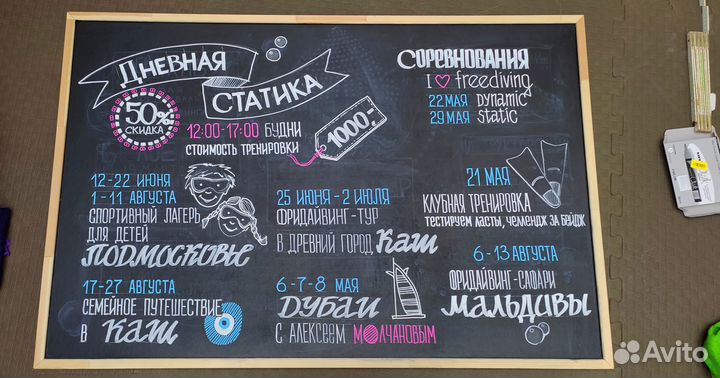 Дневная
Статика
50%
скидка
12:00-17:00 будни
стоимость тренировки
1000,-
Соревнования
I ♡ freediving
22 мая dynamic
29 мая static
12-22 июня
1-11 августа
спортивный лагерь
для детей
Подмосковье
25 июня-2 июля
фридайвинг-тур
в древний город Каш
21 мая
клубная тренировка
тестируем ласты, челендж за бейдж
17-27 августа
семейное путешествие
в Каш
6-7-8 мая
Дубаи
с Алексеем Молчановым
6-13 августа
фридайвинг-сафари
Мальдивы
Avito